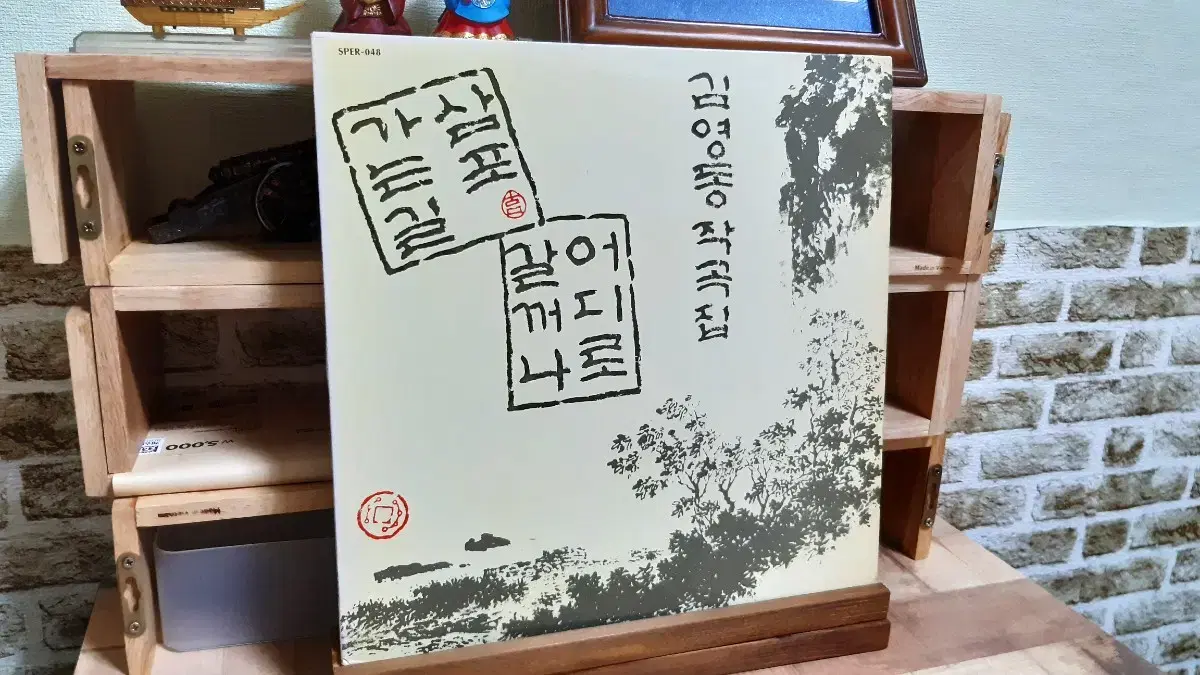 SPER-048
삼포
가는길
어디로
갈꺼나
김영동작곡집
₩5,000